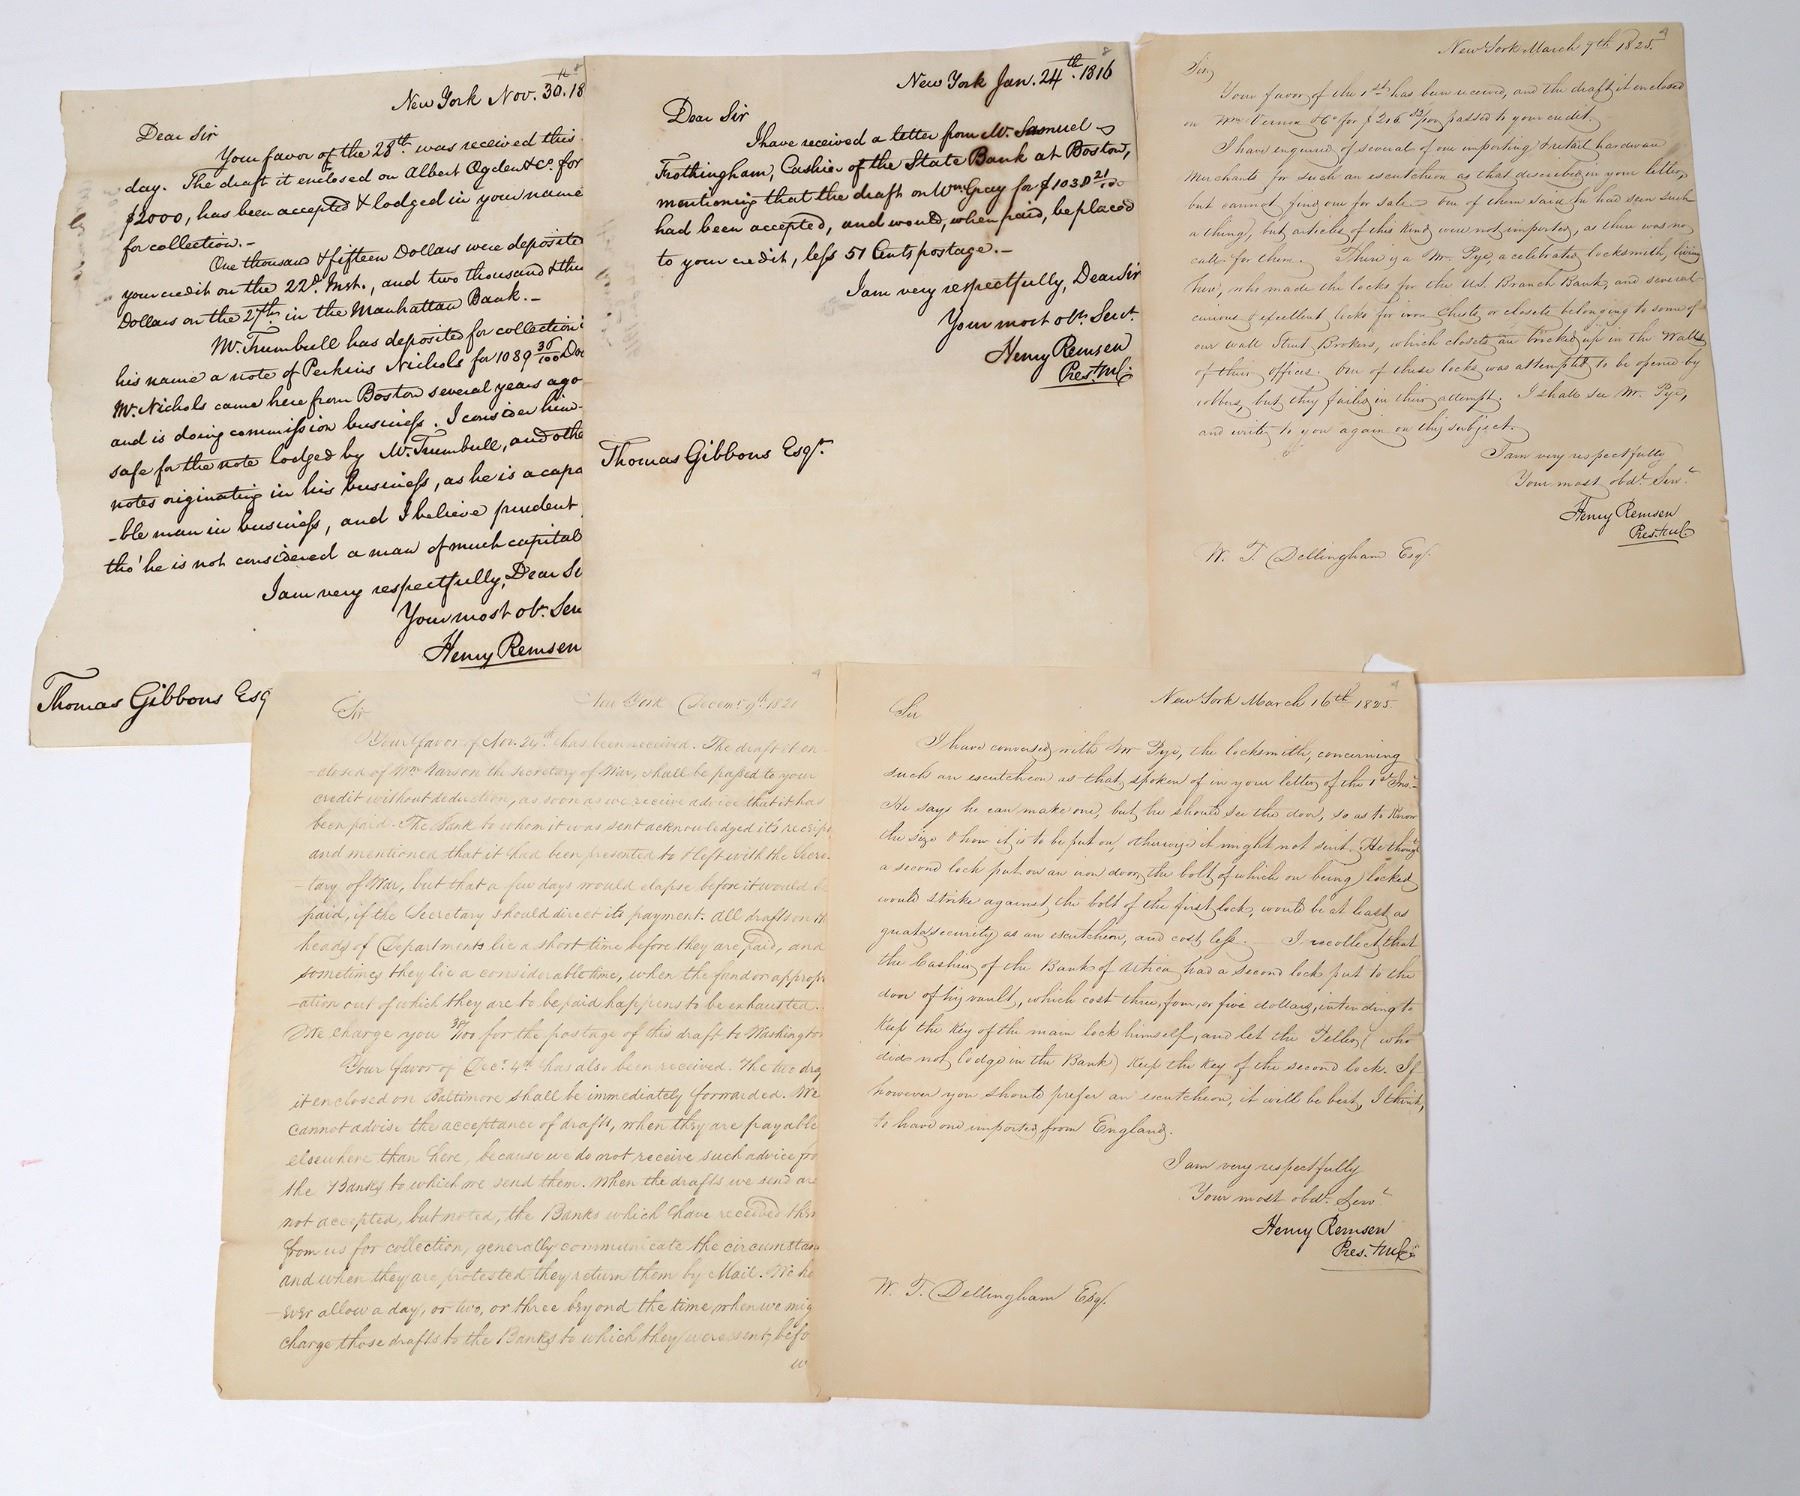 New York Nov. 30.th 18
Dear Sir
Your favor of the 28th was received this
day. The draft it enclosed on Albert Ogden & Co for
$2000, has been accepted & lodged in your name
for collection.-
One thousand & fifteen Dollars were deposite
your credit on the 22d. Inst., and two thousand & thr
Dollars on the 27th in the Manhattan Bank.-
Mr. Trumbull has deposited for collection i
his name a note of Perkins Nichols for 1089 36/100 Do
Mr. Nichols came here from Boston several years ago
and is doing commission business. I consider him
safe for the note lodged by Mr. Trumbull, and othe
notes originating in his business, as he is a capa
-ble man in business, and I believe prudent
tho' he is not considered a man of much capital
I am very respectfully, Dear Si
Your most obt. Ser
Henry Remsen
Thomas Gibbons Esq
8
New York Jan. 24th. 1816
Dear Sir
I have received a letter from Mr. Samuel
Frothingham, Cashier of the State Bank at Boston,
mentioning that the draft on Wm. Gray for $1038 21/100
had been accepted, and would, when paid, be placed
to your credit, less 51 Cents postage.-
I am very respectfully, Dear Sir
Your most obt. Servt.
Henry Remsen
Thomas Gibbons Esqr.
4
New York March 9th 1825.
Sir,
Your favor of the 1st has been received, and the draft it enclosed
on Wm Vernon & Co for $216 passed to your credit.
I have enquired of several of our importing & retail hardware
Merchants for such an escutcheon as that described in your letter,
but cannot find one for sale. One of them said he had seen such
a thing, but articles of this kind were not imported, as there was no
call for them. There is a Mr. Pye, a celebrated locksmith, living
here, who made the locks for the U.S. Branch Bank, and several
curious & excellent locks for iron chests or closets belonging to some of
our Wall Street Brokers, which closets are bricked up in the Walls
of their offices. One of these locks was attempted to be opened by
robbers, but they failed in their attempt. I shall see Mr. Pye,
and write to you again on this subject.
I am very respectfully
Your most obdt. Servt
Henry Remsen
W. T. Dellingham Esqr.
4
New York Decemr. 9th. 1821
Sir
Your favor of Nov. 24th has been received. The draft it en-
-closed of Wm on the Secretary of War, shall be passed to your
credit without deduction, as soon as we receive advice that it has
been paid. The Bank to whom it was sent acknowledged it's receipt
and mentioned that it had been presented to & left with the Secre-
-tary of War, but that a few days would elapse before it would be
paid, if the Secretary should direct its payment. All drafts on th
heads of Departments lie a short time before they are paid, and
sometimes they lie a considerable time, when the fund or appropr
-ation out of which they are to be paid happens to be exhausted.
We charge you for the postage of this draft to Washington
Your favor of Decr. 4th has also been received. The two dra
it enclosed on Baltimore shall be immediately forwarded. We
cannot advise the acceptance of drafts, when they are payable
elsewhere than here, because we do not receive such advice fro
the Banks to which we send them. When the drafts we send are
not accepted, but noted, the Banks which have received them
from us for collection, generally communicate the circumstan
and when they are protested they return them by Mail. We ho
-ever allow a day, or two, or three beyond the time when we mig
charge those drafts to the Banks to which they were sent, befo
w
4
New York March 16th 1825
Sir
I have conversed with Mr Pye, the locksmith, concerning
such an escutcheon as that spoken of in your letter of the 1st Inst.
He says he can make one, but he should see the door, so as to Know
the size & how it is to be put on, otherwise it might not suit. He thought
a second lock put on an iron door, the bolt of which on being locked
would strike against the bolt of the first lock, would be at least as
great a security as an escutcheon, and cost less. I recollect that
the Cashier of the Bank of Utica had a second lock put to the
door of his vault, which cost three, four, or five dollars, intending to
Keep the Key of the main lock himself, and let the Teller (who
did not lodge in the Bank) Keep the Key of the second lock. If
however you should prefer an escutcheon, it will be best, I think,
to have one imported from England.
I am very respectfully
Your most obdt. Servt
Henry Remsen
W. T. Dellingham Esqr.